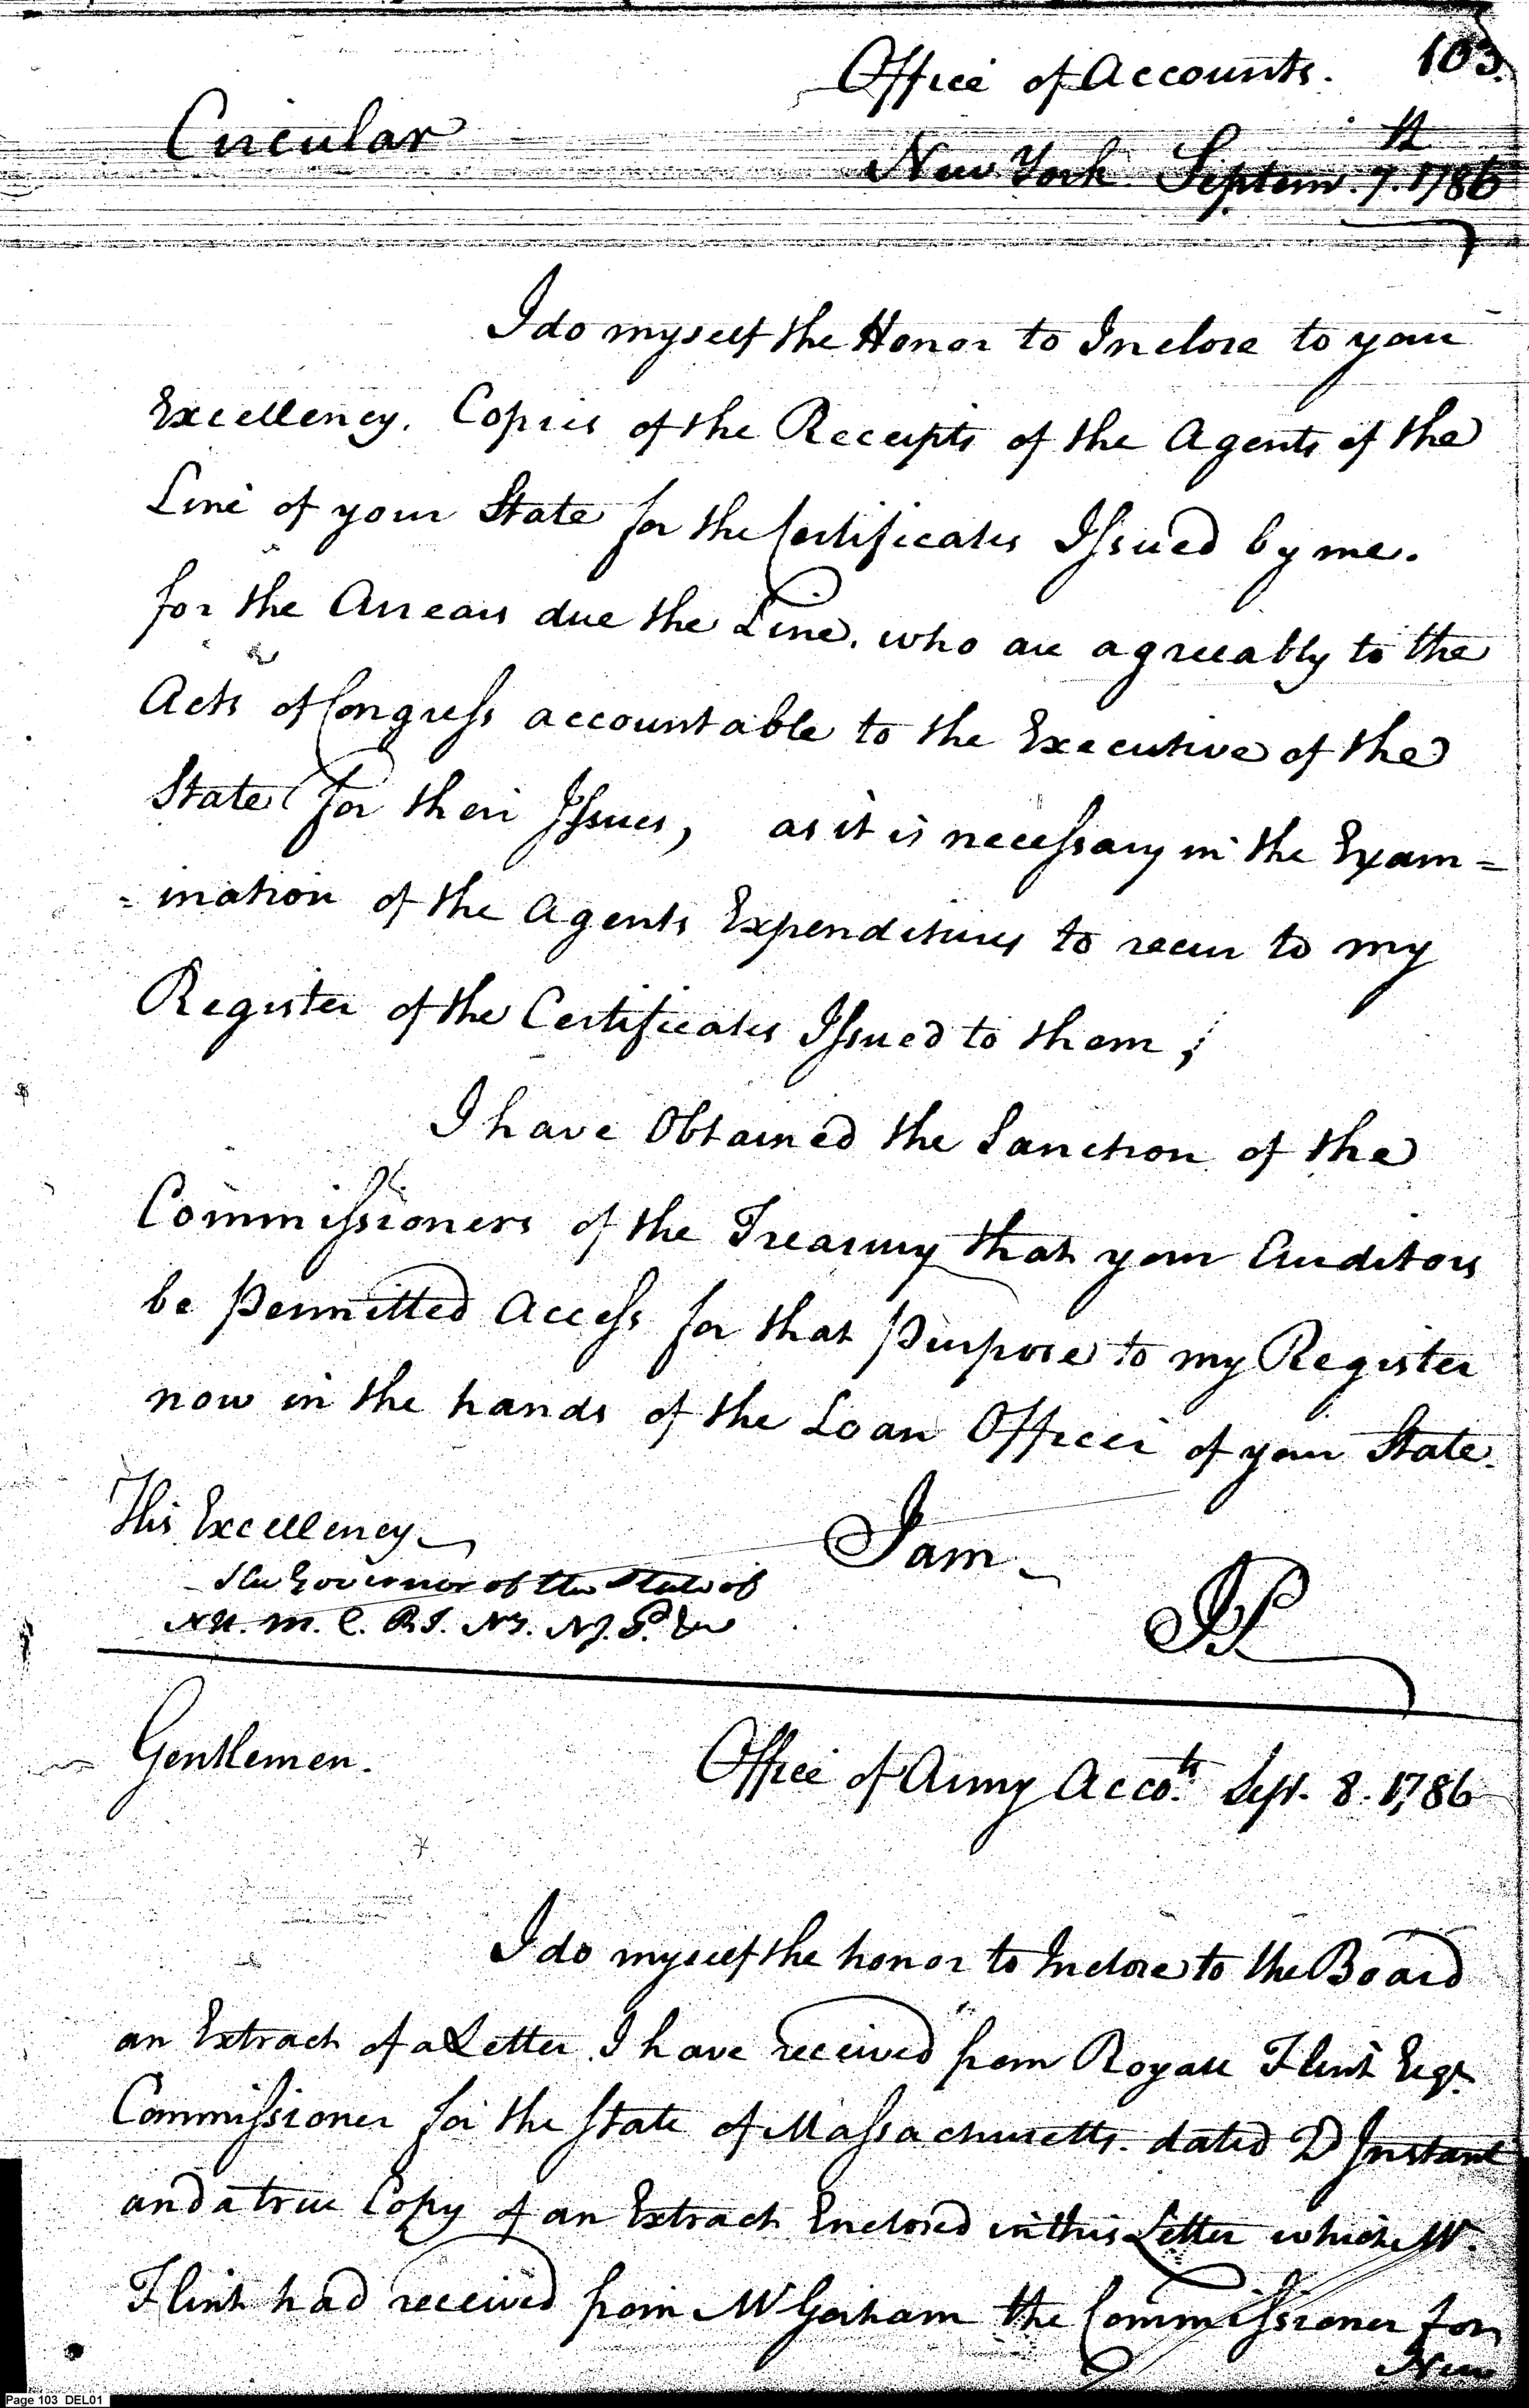 103.
Office of Accounts.
Circular
New York Septem. 7. 1786
I do myself the Honor to Inclose to your
Excellency. Copies of the Receipts of the Agents of the
Line of your State for the Certificates Issued by me.
for the Arrears due the Line. who are agreeably to the
Acts of Congress accountable to the Executive of the
State for their Issues, as it is necessary in the Exam=
=ination of the Agents Expenditures to recur to my
Register of the Certificates Issued to them;
I have Obtained the Sanction of the
Commissioners of the Treasury that your Auditors
be Permitted Access for that Purpose to my Register
now in the hands of the Loan Officer of your State.
His Excellency
I am
the Governor of the State of
NH. M. C. R.I. NY. NJ. P. &c
Gentlemen.
Office of Army Acco.ts Sept. 8. 1786
I do myself the honor to Inclose to the Board
an Extract of a Letter I have received from Royall Flint Esqr.
Commissioner for the State of Massachusetts. dated 2D Instant
and a true Copy of an Extract Enclosed in this Letter which Mr.
Flint had received from Mr Gorham the Commissioner for
New
Page 103 DEL01